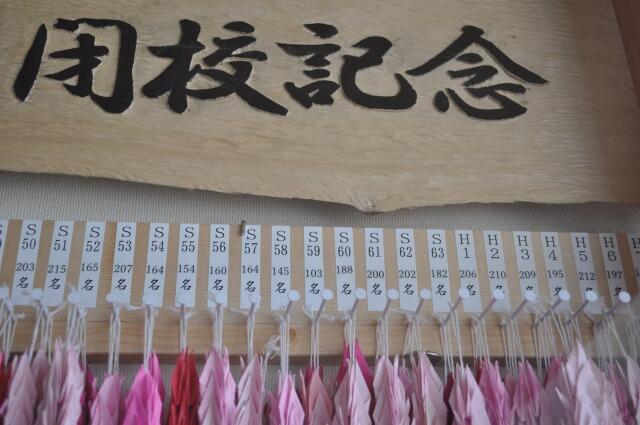 閉校記念
S 50 203 名
S 51 215 名
S 52 165 名
S 53 207 名
S 54 164 名
S 55 154 名
S 56 160 名
S 57 164 名
S 58 145 名
S 59 103 名
S 60 188 名
S 61 200 名
S 62 202 名
S 63 182 名
H 1 206 名
H 2 210 名
H 3 209 名
H 4 195 名
H 5 212 名
H 6 197 名